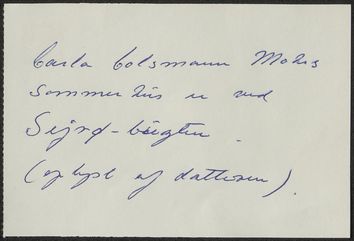 Carla Colsmann Mohrs
sommerhus er ved
Sejrø-bugten.
(oplyst af datteren).